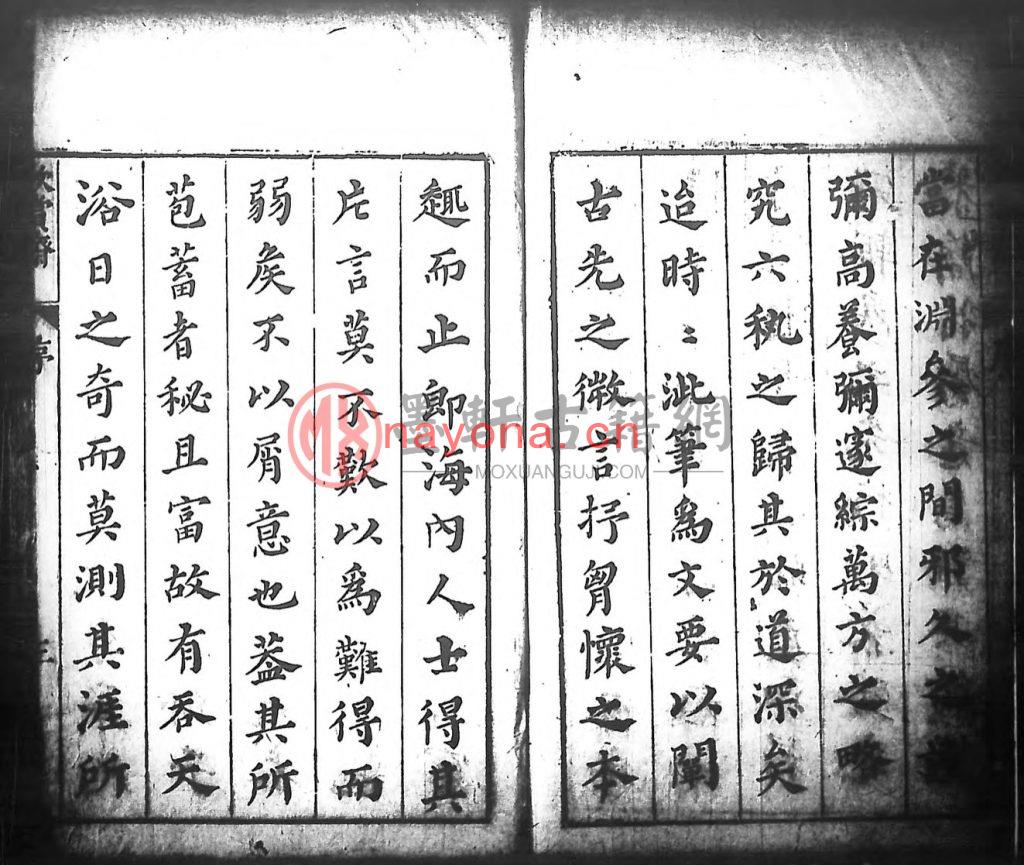 當在淵參之間邪久之
彌高養彌邃綜萬方之略
究六秇之歸其於道深矣
迨時〻泚筆爲文要以闡
古先之微言抒胷懷之本
趣而止卽海內人士得其
片言莫不歎以爲難得而
弱矦不以屑意也葢其所
苞蓄者秘且富故有吞天
浴日之奇而莫測其涯所
序
墨軒古籍網
nayona.cn
MOXUANGUJI.COM